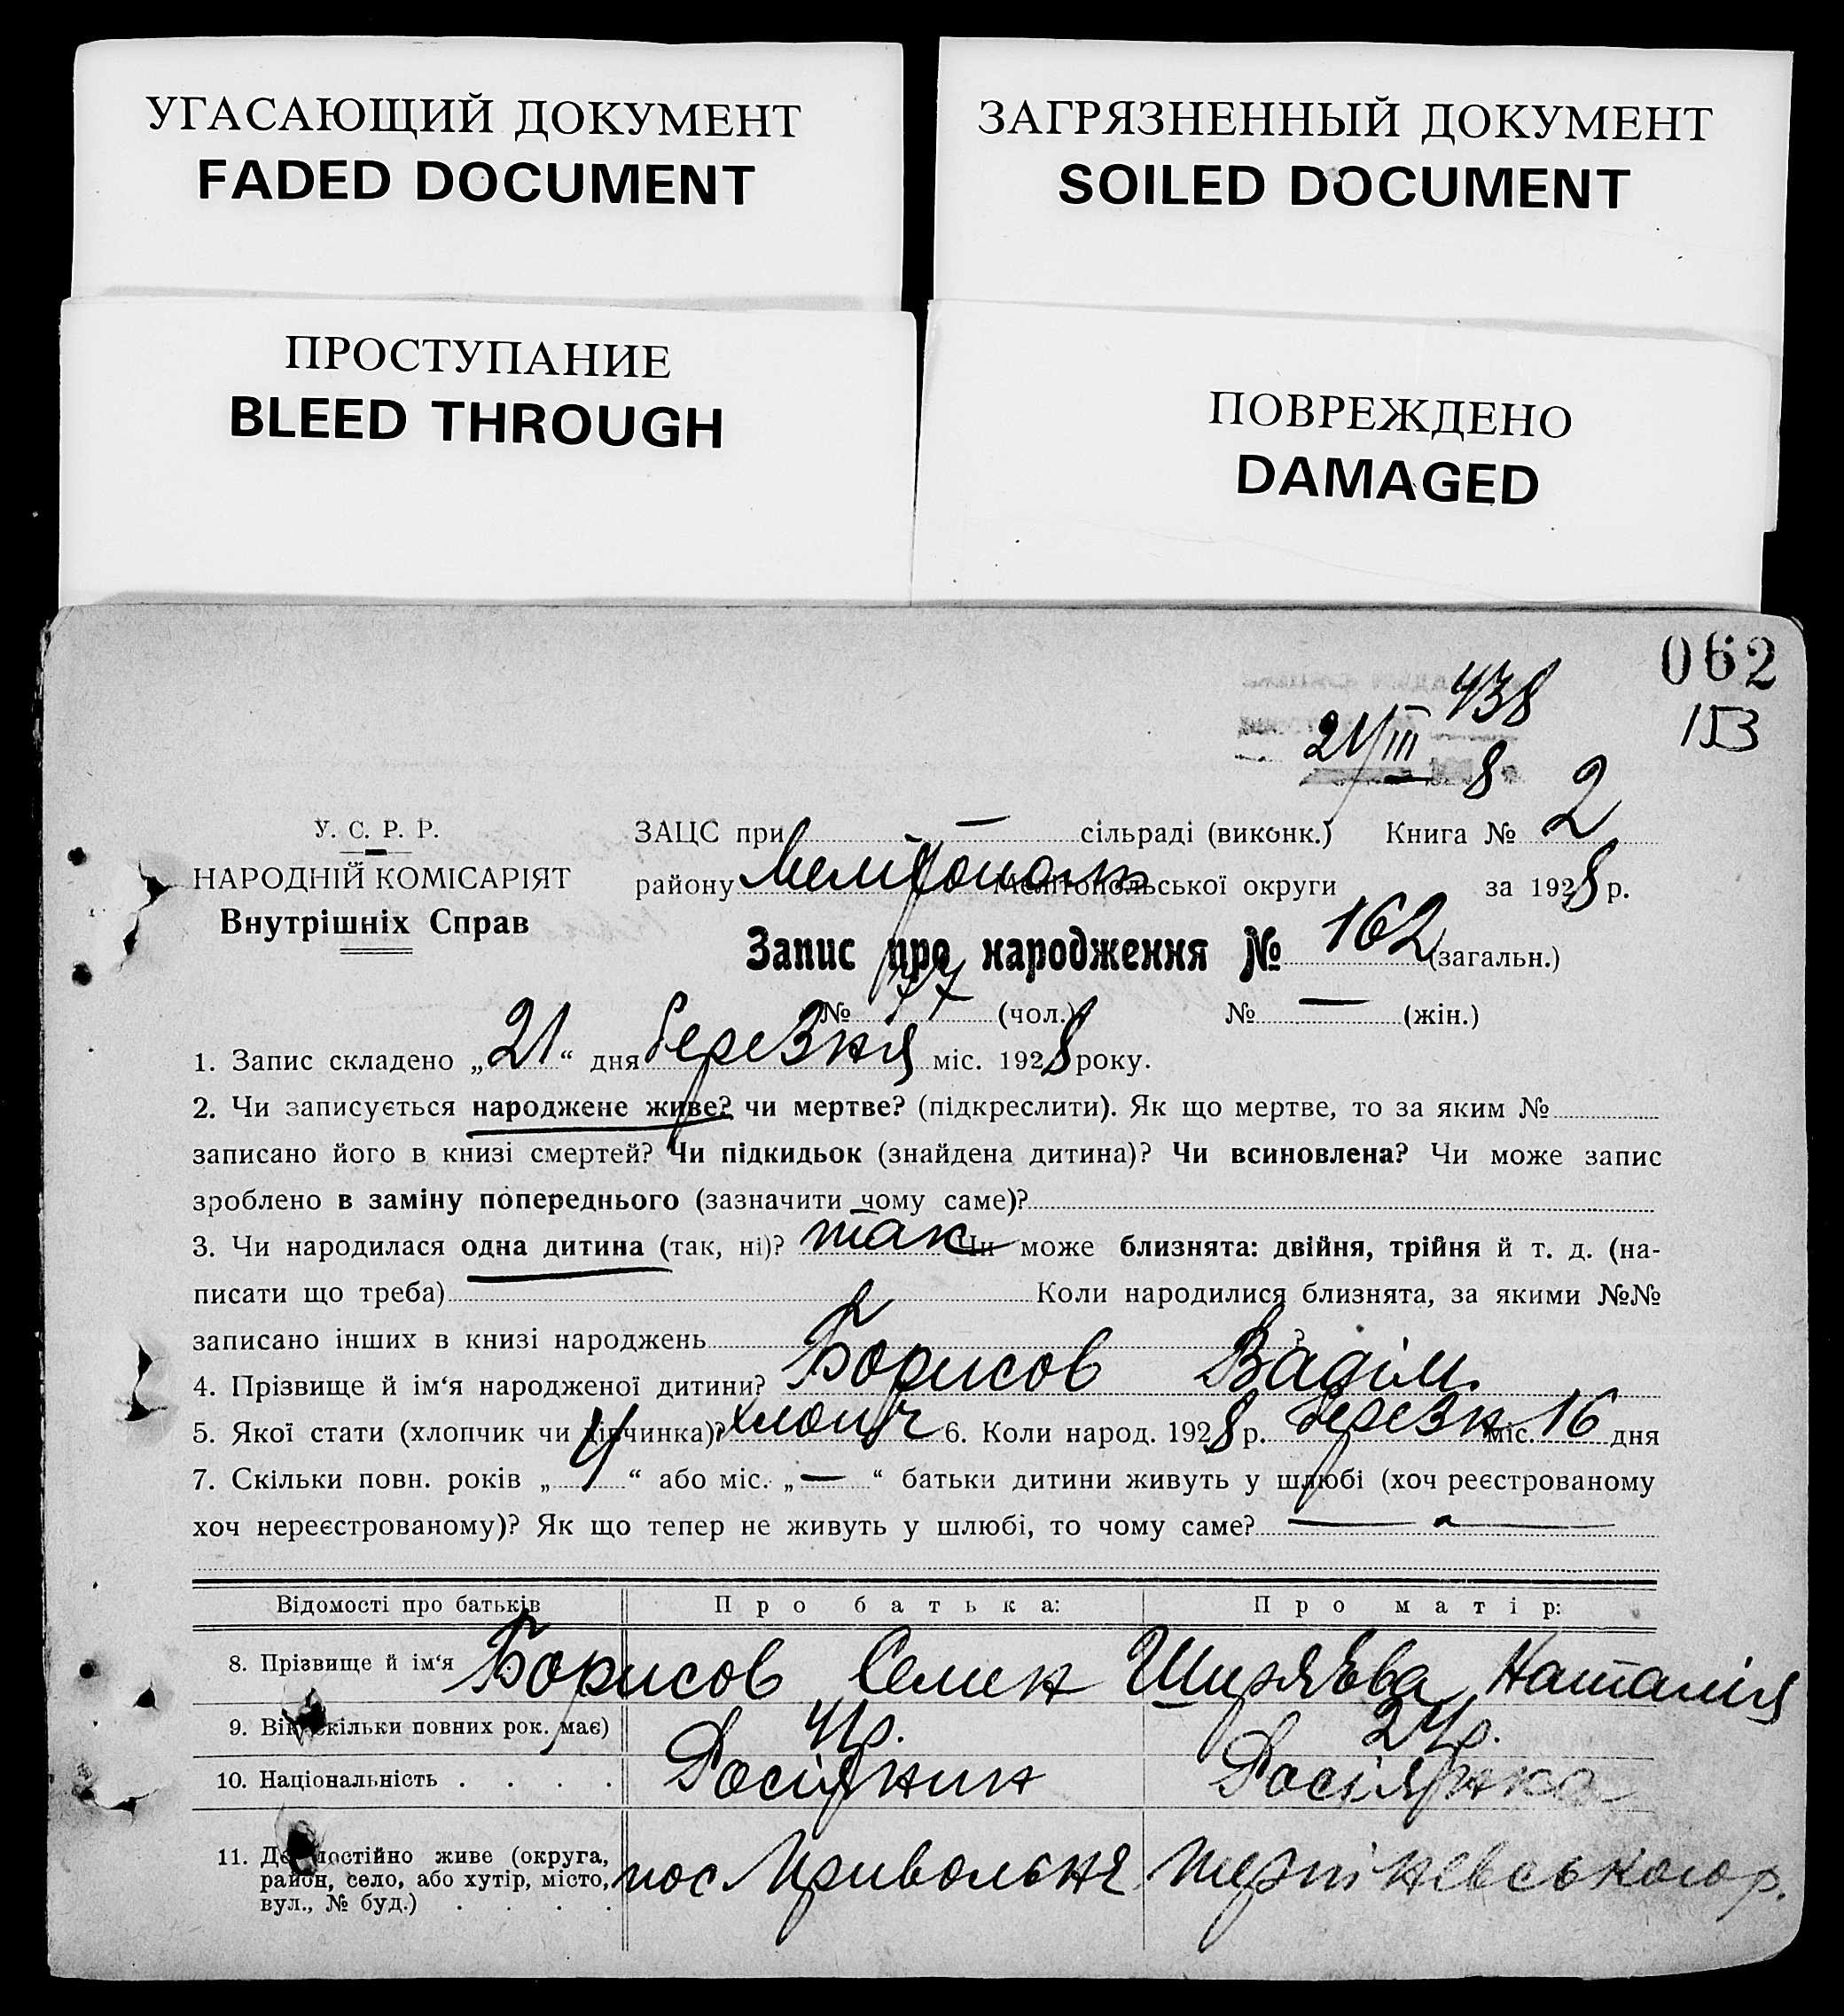 УГАСАЮЩИЙ ДОКУМЕНТ
FADED DOCUMENT
ЗАГРЯЗНЕННЫЙ ДОКУМЕНТ
SOILED DOCUMENT
ПРОСТУПАНИЕ
BLEED THROUGH
ПОВРЕЖДЕНО
DAMAGED
062
153
438
21/III 8
У. С. Р. Р.
НАРОДНІЙ КОМІСАРІЯТ
Внутрішніх Справ
ЗАЦС при — сільраді (виконк.) Книга № 2
району Мелітополь Мелітопольської округи за 1928 р.
Запис про народження № 162 (загальн.)
№ 77 (чол.) № — (жін.)
1. Запис складено „21“ дня березня міс. 1928 року.
2. Чи записується народжене живе? чи мертве? (підкреслити). Як що мертве, то за яким №
записано його в книзі смертей? Чи підкидьок (знайдена дитина)? Чи всиновлена? Чи може запис
зроблено в заміну попереднього (зазначити чому саме)?
3. Чи народилася одна дитина (так, ні)? так Чи може близнята: двійня, трійня й т. д. (на-
писати що треба) Коли народилися близнята, за якими №№
записано інших в книзі народжень ?
4. Прізвище й ім‘я народженої дитини? Борисов Вадім
5. Якої стати (хлопчик чи дівчинка)? хлопч 6. Коли народ. 1928 р. березн міс. 16 дня
7. Скільки повн. років „4“ або міс. „—“ батьки дитини живуть у шлюбі (хоч реєстрованому
хоч нереєстрованому)? Як що тепер не живуть у шлюбі, то чому саме? —
Відомості про батьків Про батька: Про матір:
8. Прізвище й ім‘я Борисов Семен Ширяєва Наталія
9. Вік (скільки повних рок. має) 41р. 24р.
10. Національність . . . . Росіянин Росіянка
11. Де постійно живе (округа,
район, село, або хутір, місто,
вул., № буд.) . . . .
пос Привольня Терпіневського р.